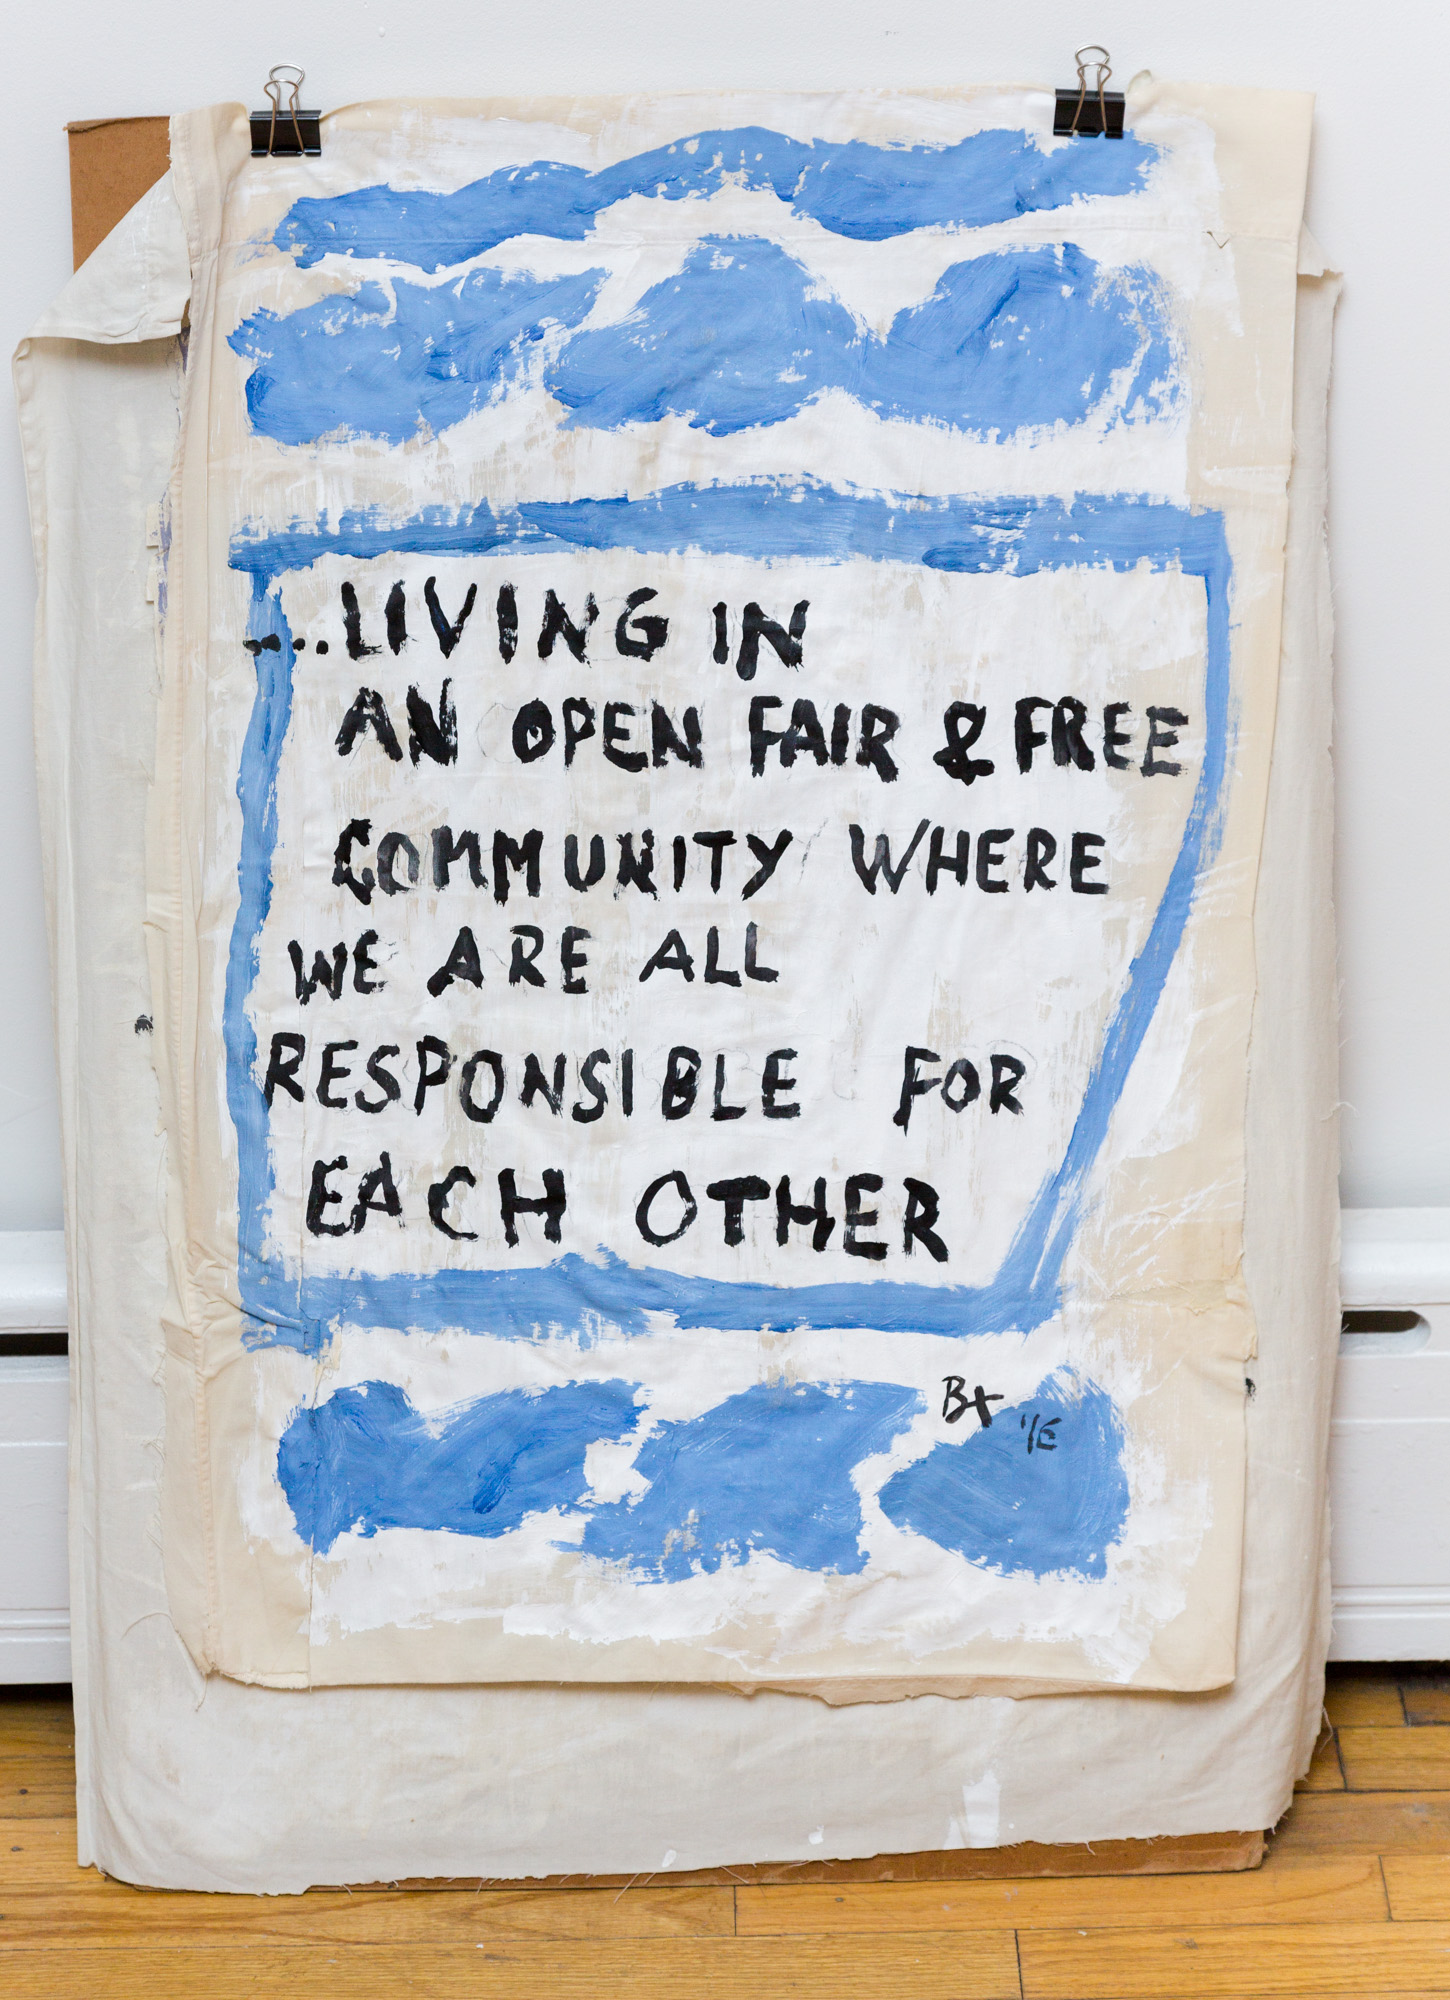 ....LIVING IN
AN OPEN FAIR & FREE
COMMUNITY WHERE
WE ARE ALL
RESPONSIBLE FOR
EACH OTHER